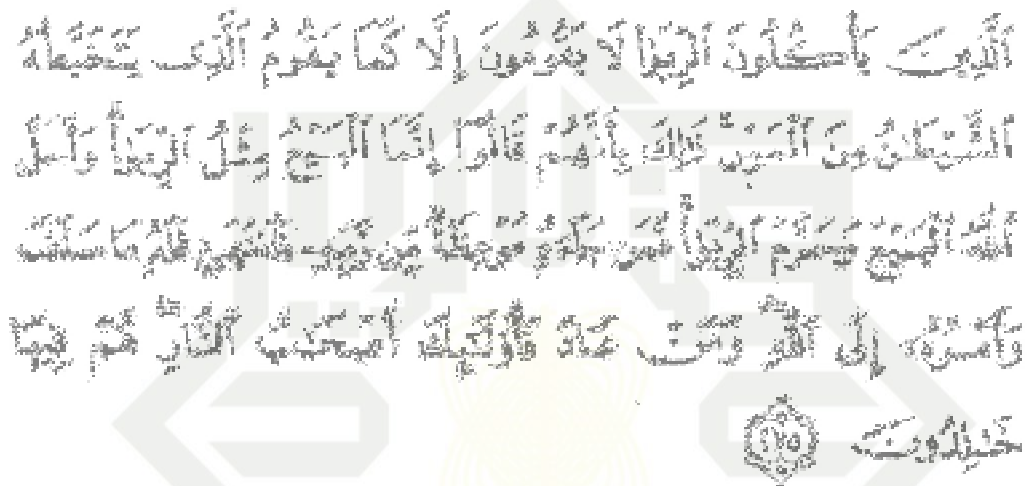 ٱلَّذِينَ يَأْكُلُونَ ٱلرِّبَوٰا۟ لَا يَقُومُونَ إِلَّا كَمَا يَقُومُ ٱلَّذِى يَتَخَبَّطُهُ
ٱلشَّيْطَـٰنُ مِنَ ٱلْمَسِّ ۚ ذَٰلِكَ بِأَنَّهُمْ قَالُوٓا۟ إِنَّمَا ٱلْبَيْعُ مِثْلُ ٱلرِّبَوٰا۟ ۗ وَأَحَلَّ
ٱللَّهُ ٱلْبَيْعَ وَحَرَّمَ ٱلرِّبَوٰا۟ ۚ فَمَن جَآءَهُۥ مَوْعِظَةٌ مِّن رَّبِّهِۦ فَٱنتَهَىٰ فَلَهُۥ مَا سَلَفَ
وَأَمْرُهُۥٓ إِلَى ٱللَّهِ ۖ وَمَنْ عَادَ فَأُو۟لَـٰٓئِكَ أَصْحَـٰبُ ٱلنَّارِ ۖ هُمْ فِيهَا
خَـٰلِدُونَ ٢٧٥